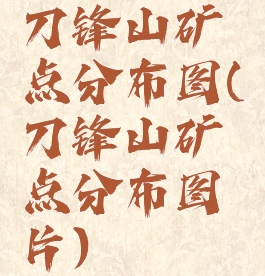 刀锋山矿
点分布图(
刀锋山矿
点分布图
片)